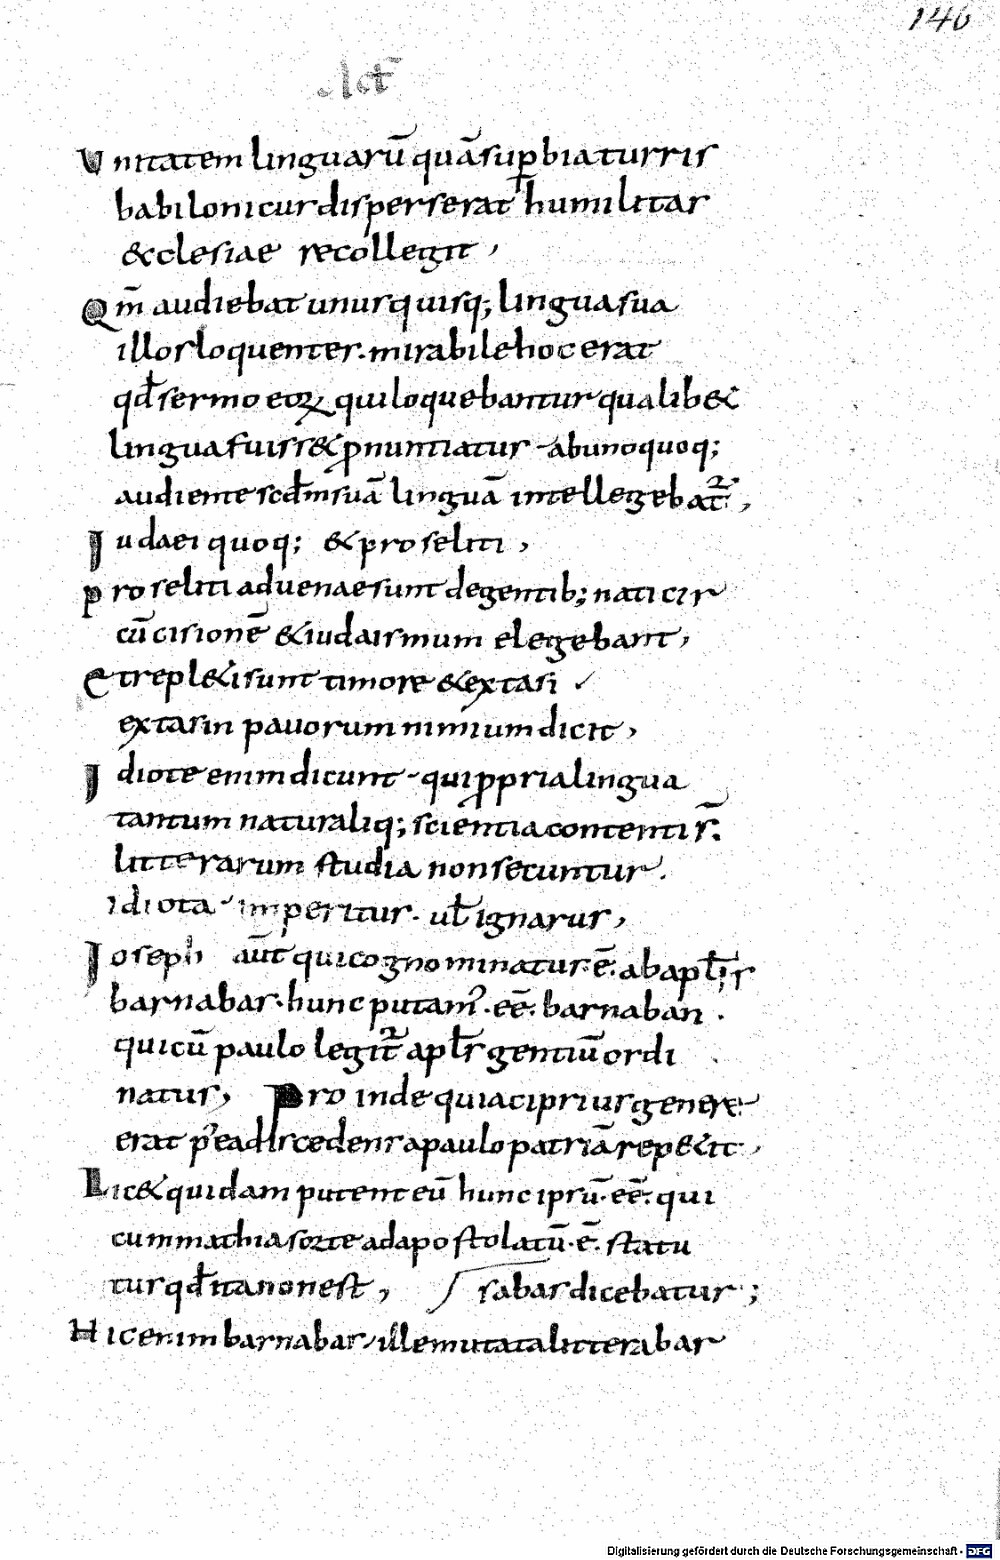 146
Act̄
Unitatem linguarū quā suꝑbia turris
babilonicus disperserat humilitas
&cclesiae recollegit,
Qm̄ audiebat unusquisq; lingua sua
illos loquentes. mirabile hoc erat
qđ sermo eoꝝ qui loquebantur qualib&
lingua fuiss& ꝓnuntiatus - ab unoquoq;
audiente scdm suā linguā intellegebat᷑,
Iudaei quoq; & proseliti,
proseliti aduenae sunt de gentib; nati cir
cūcisionē & iudaismum elegebant,
Et repl&i sunt timore & extasi
extasin pauorum nimium dicit,
Idiote enim dicunt - qui ꝓpria lingua
tantum naturaliq; scientia contenti s̄.
litterarum studia non secuntur.
idiota - imperitus. ul̄ ignarus,
Ioseph aūt qui cognominatus. ē. ab apl̄is
barnabas. hunc putam᾽. eē. barnaban.
qui cū paulo legit᷑ apl̄s gentiū ordi
natus, Pro inde quia ciprius genere
erat p᾽ea discedens a paulo patriā rep&it,
Lic& quidam putent eū hunc ipsū. eē. qui
cum mathia sorte ad apostolatū. ē. statu
tus qđ ita non est, sabas dicebatur;
Hic enim barnabas, ille mutata littera bar
Digitalisierung gefördert durch die Deutsche Forschungsgemeinschaft - DFG